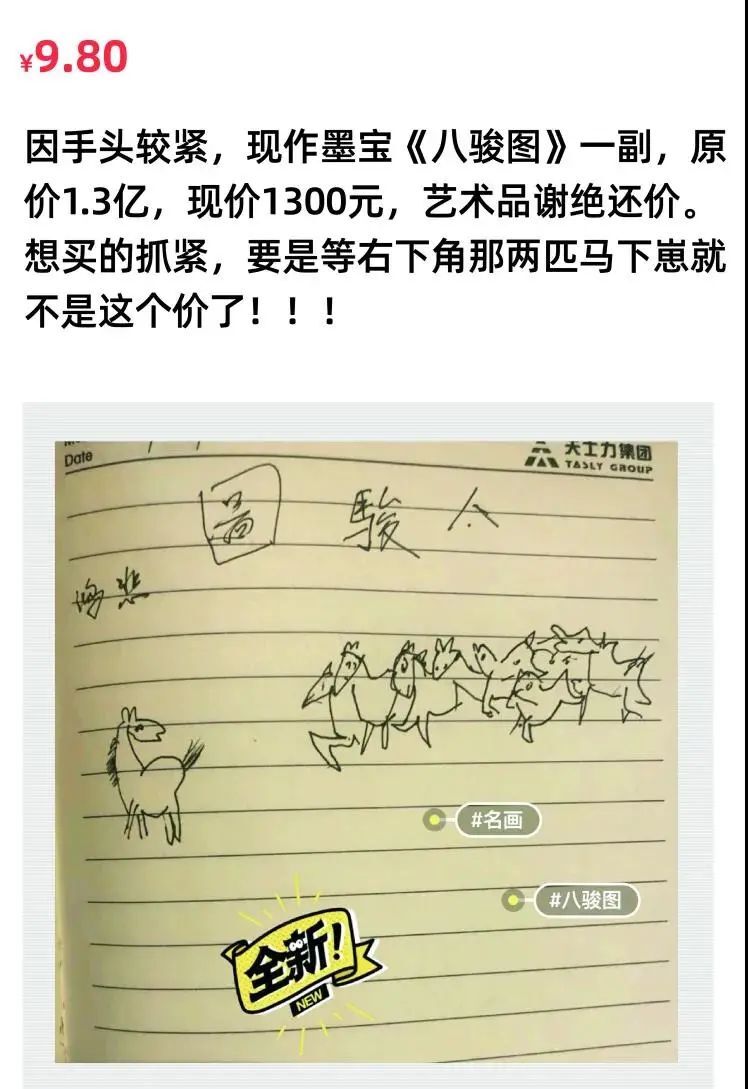 ¥9.80
因手头较紧，现作墨宝《八骏图》一副，原
价1.3亿，现价1300元，艺术品谢绝还价。
想买的抓紧，要是等右下角那两匹马下崽就
不是这个价了！！！
Date
天士力集团
TASLY GROUP
圖 駿 八
鸿悲
#名画
#八骏图
全新!
NEW